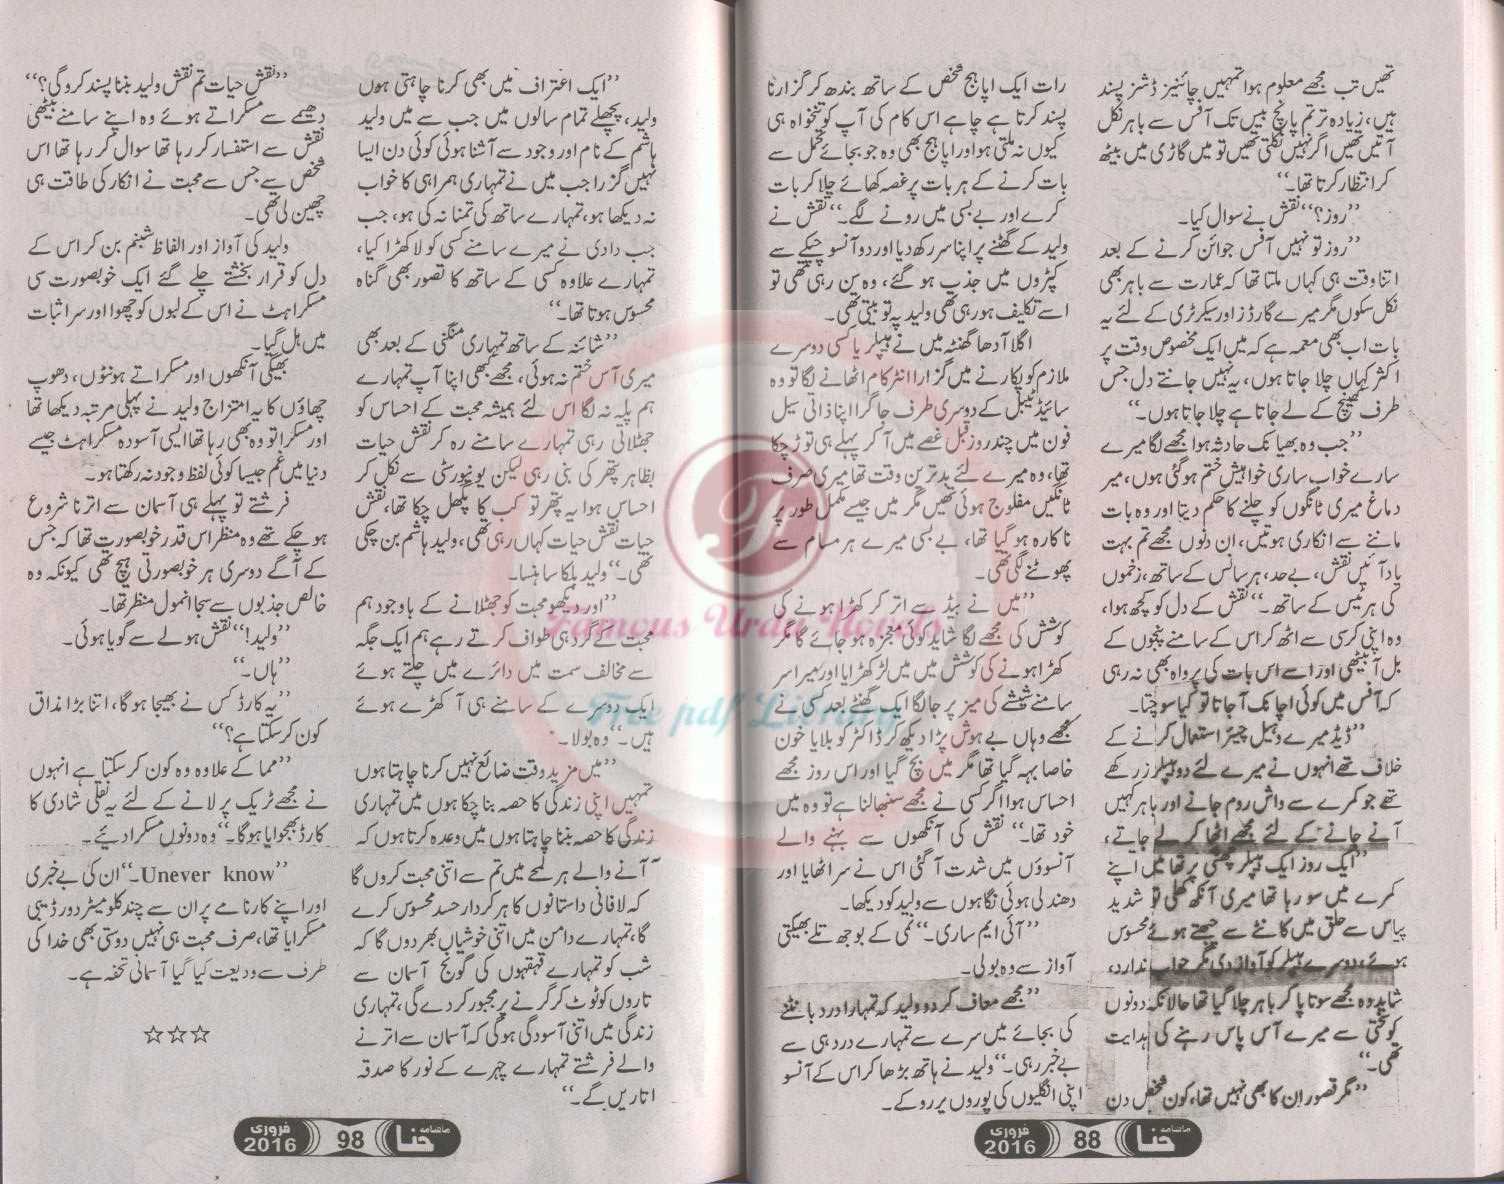 تھیں تب مجھے معلوم ہوا تمہیں چائنیز ڈشز پسند
ہیں، زیادہ تر تم پانچ بیس تک آفس سے باہر نکل
آتیں تھیں اگر نہیں نکلتی تھیں تو میں گاڑی میں بیٹھ
کر انتظار کرتا تھا۔“
”روز؟“ نقش نے سوال کیا۔
”روز تو نہیں آفس جوائن کرنے کے بعد
اتنا وقت ہی کہاں ملتا تھا کہ عمارت سے باہر بھی
نکل سکوں مگر میرے گارڈز اور سیکرٹری کے لئے یہ
بات اب بھی معمہ ہے کہ میں ایک مخصوص وقت پر
اکثر کہاں چلا جاتا ہوں، یہ نہیں جانتے دل جس
طرف کھینچ کے لے جاتا ہے چلا جاتا ہوں۔“
”جب وہ بھیانک حادثہ ہوا مجھے لگا میرے
سارے خواب ساری خواہیش ختم ہو گئی ہوں، میر
دماغ میری ٹانگوں کو چلنے کا حکم دیتا اور وہ بات
ماننے سے انکاری ہوتیں، ان دنوں مجھے تم بہت
یاد آئیں نقش، بے حد، ہر سانس کے ساتھ، زخموں
کی ہر ٹیس کے ساتھ۔“ نقش کے دل کو کچھ ہوا،
وہ اپنی کرسی سے اٹھ کر اس کے سامنے پنجوں کے
بل آ بیٹھی اور اسے اس بات کی پرواہ بھی نہ رہی
کہ آفس میں کوئی اچانک آ جاتا تو کیا سوچتا۔
”ڈیڈ میرے وہیل چیئر استعمال کرنے کے
خلاف تھے انہوں نے میرے لئے دو ہیلپرز رکھے
تھے جو کمرے سے واش روم جانے اور باہر کہیں
آنے جانے کے لئے مجھے اٹھا کر لے جاتے،
”ایک روز ایک ہیلپر چھٹی پر تھا میں اپنے
کمرے میں سو رہا تھا میری آنکھ کھلی تو شدید
پیاس سے حلق میں کانٹے سے چبھتے ہوئے محسوس
ہوئے، دوسرے ہیلپر کو آواز دی مگر جواب ندارد،
شاید وہ مجھے سوتا پا کر باہر چلا گیا تھا حالانکہ دونوں
کو سختی سے میرے آس پاس رہنے کی ہدایت
تھی۔“
”مگر قصور ان کا بھی نہیں تھا، کون شخص دن
رات ایک اپاہج شخص کے ساتھ بندھ کر گزارنا
پسند کرتا ہے چاہے اس کام کی آپ کو تنخواہ ہی
کیوں نہ ملتی ہو اور اپاہج بھی وہ جو بجائے تحمل سے
بات کرنے کے ہر بات پر غصہ کھائے چلا کر بات
کرے اور بے بسی میں رونے لگے۔“ نقش نے
ولید کے گھٹنے پر اپنا سر رکھ دیا اور دو آنسو چپکے سے
کپڑوں میں جذب ہو گئے، وہ سن رہی تھی تو
اسے تکلیف ہو رہی تھی ولید پہ تو بیتی تھی۔
اگلا آدھا گھنٹہ میں نے ہیلپر یا کسی دوسرے
ملازم کو پکارنے میں گزارا انٹرکام اٹھانے لگا تو وہ
سائیڈ ٹیبل کے دوسری طرف جا گرا اپنا ذاتی سیل
فون میں چند روز قبل غصے میں آ کر پہلے ہی توڑ چکا
تھا، وہ میرے لئے بدترین وقت تھا میری صرف
ٹانگیں مفلوج ہوئی تھیں مگر میں جیسے مکمل طور پر
ناکارہ ہو گیا تھا، بے بسی میرے ہر مسام سے
پھوٹنے لگی تھی۔
”میں نے بیڈ سے اتر کر کھڑا ہونے کی
کوشش کی مجھے لگا شاید کوئی معجزہ ہو جائے گا مگر
کھڑا ہونے کی کوشش میں میں لڑکھڑایا اور میرا سر
سامنے شیشے کی میز پر جا لگا ایک گھنٹے بعد کسی نے
مجھے وہاں بے ہوش پڑا دیکھ کر ڈاکٹر کو بلایا خون
خاصا بہہ گیا تھا مگر میں بچ گیا اور اس روز مجھے
احساس ہوا اگر کسی نے مجھے سنبھالنا ہے تو وہ میں
خود تھا۔“ نقش کی آنکھوں سے بہنے والے
آنسوؤں میں شدت آ گئی اس نے سر اٹھایا اور
دھندلی ہوئی نگاہوں سے ولید کو دیکھا۔
”آئی ایم ساری۔“ نمی کے بوجھ تلے بھیگتی
آواز سے وہ بولی۔
”مجھے معاف کر دو ولید کہ تمہارا درد بانٹنے
کی بجائے میں سرے سے تمہارے درد ہی سے
بے خبر رہی۔“ ولید نے ہاتھ بڑھا کر اس کے آنسو
اپنی انگلیوں کی پوروں پر روکے۔
ماہنامہ حنا 88 فروری 2016
”ایک اعتراف میں بھی کرنا چاہتی ہوں
ولید، پچھلے تمام سالوں میں جب سے میں ولید
ہاشم کے نام اور وجود سے آشنا ہوئی کوئی دن ایسا
نہیں گزرا جب میں نے تمہاری ہمراہی کا خواب
نہ دیکھا ہو، تمہارے ساتھ کی تمنا نہ کی ہو، جب
جب دادی نے میرے سامنے کسی کو لا کھڑا کیا،
تمہارے علاوہ کسی کے ساتھ کا تصور بھی گناہ
محسوس ہوتا تھا۔“
”شائنہ کے ساتھ تمہاری منگنی کے بعد بھی
میری آس ختم نہ ہوئی، مجھے بھی اپنا آپ تمہارے
ہم پلہ نہ لگا اس لئے ہمیشہ محبت کے احساس کو
جھٹلاتی رہی تمہارے سامنے رہ کر نقش حیات
بظاہر پتھر کی بنی رہی لیکن یونیورسٹی سے نکل کر
احساس ہوا یہ پتھر تو کب کا پگھل چکا تھا، نقش
حیات نقش حیات کہاں رہی تھی، ولید ہاشم بن چکی
تھی۔“ ولید ہلکا سا ہنسا۔
”اور دیکھو محبت کو جھٹلانے کے باوجود ہم
محبت کے گرد ہی طواف کرتے رہے ہم ایک جگہ
سے مخالف سمت میں دائرے میں چلتے ہوئے
ایک دوسرے کے سامنے ہی آ کھڑے ہوئے
ہیں۔“ وہ بولا۔
”میں مزید وقت ضائع نہیں کرنا چاہتا ہوں
تمہیں اپنی زندگی کا حصہ بنا چکا ہوں میں تمہاری
زندگی کا حصہ بننا چاہتا ہوں میں وعدہ کرتا ہوں کہ
آنے والے ہر لمحے میں تم سے اتنی محبت کروں گا
کہ لافانی داستانوں کا ہر کردار حسد محسوس کرے
گا، تمہارے دامن میں اتنی خوشیاں بھر دوں گا کہ
شب کو تمہارے قہقہوں کی گونج آسمان سے
تاروں کو ٹوٹ کر گرنے پر مجبور کر دے گی، تمہاری
زندگی میں اتنی آسودگی ہو گی کہ آسمان سے اترنے
والے فرشتے تمہارے چہرے کے نور کا صدقہ
اتاریں گے۔“
”نقش حیات تم نقش ولید بننا پسند کرو گی؟“
دھیمے سے مسکراتے ہوئے وہ اپنے سامنے بیٹھی
نقش سے استفسار کر رہا تھا سوال کر رہا تھا اس
شخص سے جس سے محبت نے انکار کی طاقت ہی
چھین لی تھی۔
ولید کی آواز اور الفاظ شبنم بن کر اس کے
دل کو قرار بخشتے چلے گئے ایک خوبصورت سی
مسکراہٹ نے اس کے لبوں کو چھوا اور سر اثبات
میں ہل گیا۔
بھیگی آنکھوں اور مسکراتے ہونٹوں، دھوپ
چھاؤں کا یہ امتزاج ولید نے پہلی مرتبہ دیکھا تھا
اور مسکرا تو وہ بھی رہا تھا ایسی آسودہ مسکراہٹ جیسے
دنیا میں غم جیسا کوئی لفظ وجود نہ رکھتا ہو۔
فرشتے تو پہلے ہی آسمان سے اترنا شروع
ہو چکے تھے وہ منظر اس قدر خوبصورت تھا کہ جس
کے آگے دوسری ہر خوبصورتی ہیچ تھی کیونکہ وہ
خالص جذبوں سے سجا انمول منظر تھا۔
”ولید!“ نقش ہولے سے گویا ہوئی۔
”ہاں۔“
”یہ کارڈ کس نے بھیجا ہو گا، اتنا بڑا مذاق
کون کر سکتا ہے؟“
”مما کے علاوہ وہ کون کر سکتا ہے انہوں
نے مجھے ٹریک پر لانے کے لئے یہ نقلی شادی کا
کارڈ بھجوایا ہو گا۔“ وہ دونوں مسکرا دیئے۔
”Unever know۔“ ان کی بے خبری
اور اپنے کارنامے پر ان سے چند کلومیٹر دور ڈیبی
مسکرایا تھا، صرف محبت ہی نہیں دوستی بھی خدا کی
طرف سے ودیعت کیا گیا آسمانی تحفہ ہے۔
☆☆☆
ماہنامہ حنا 98 فروری 2016
Famous Urdu Novels
Free pdf Library